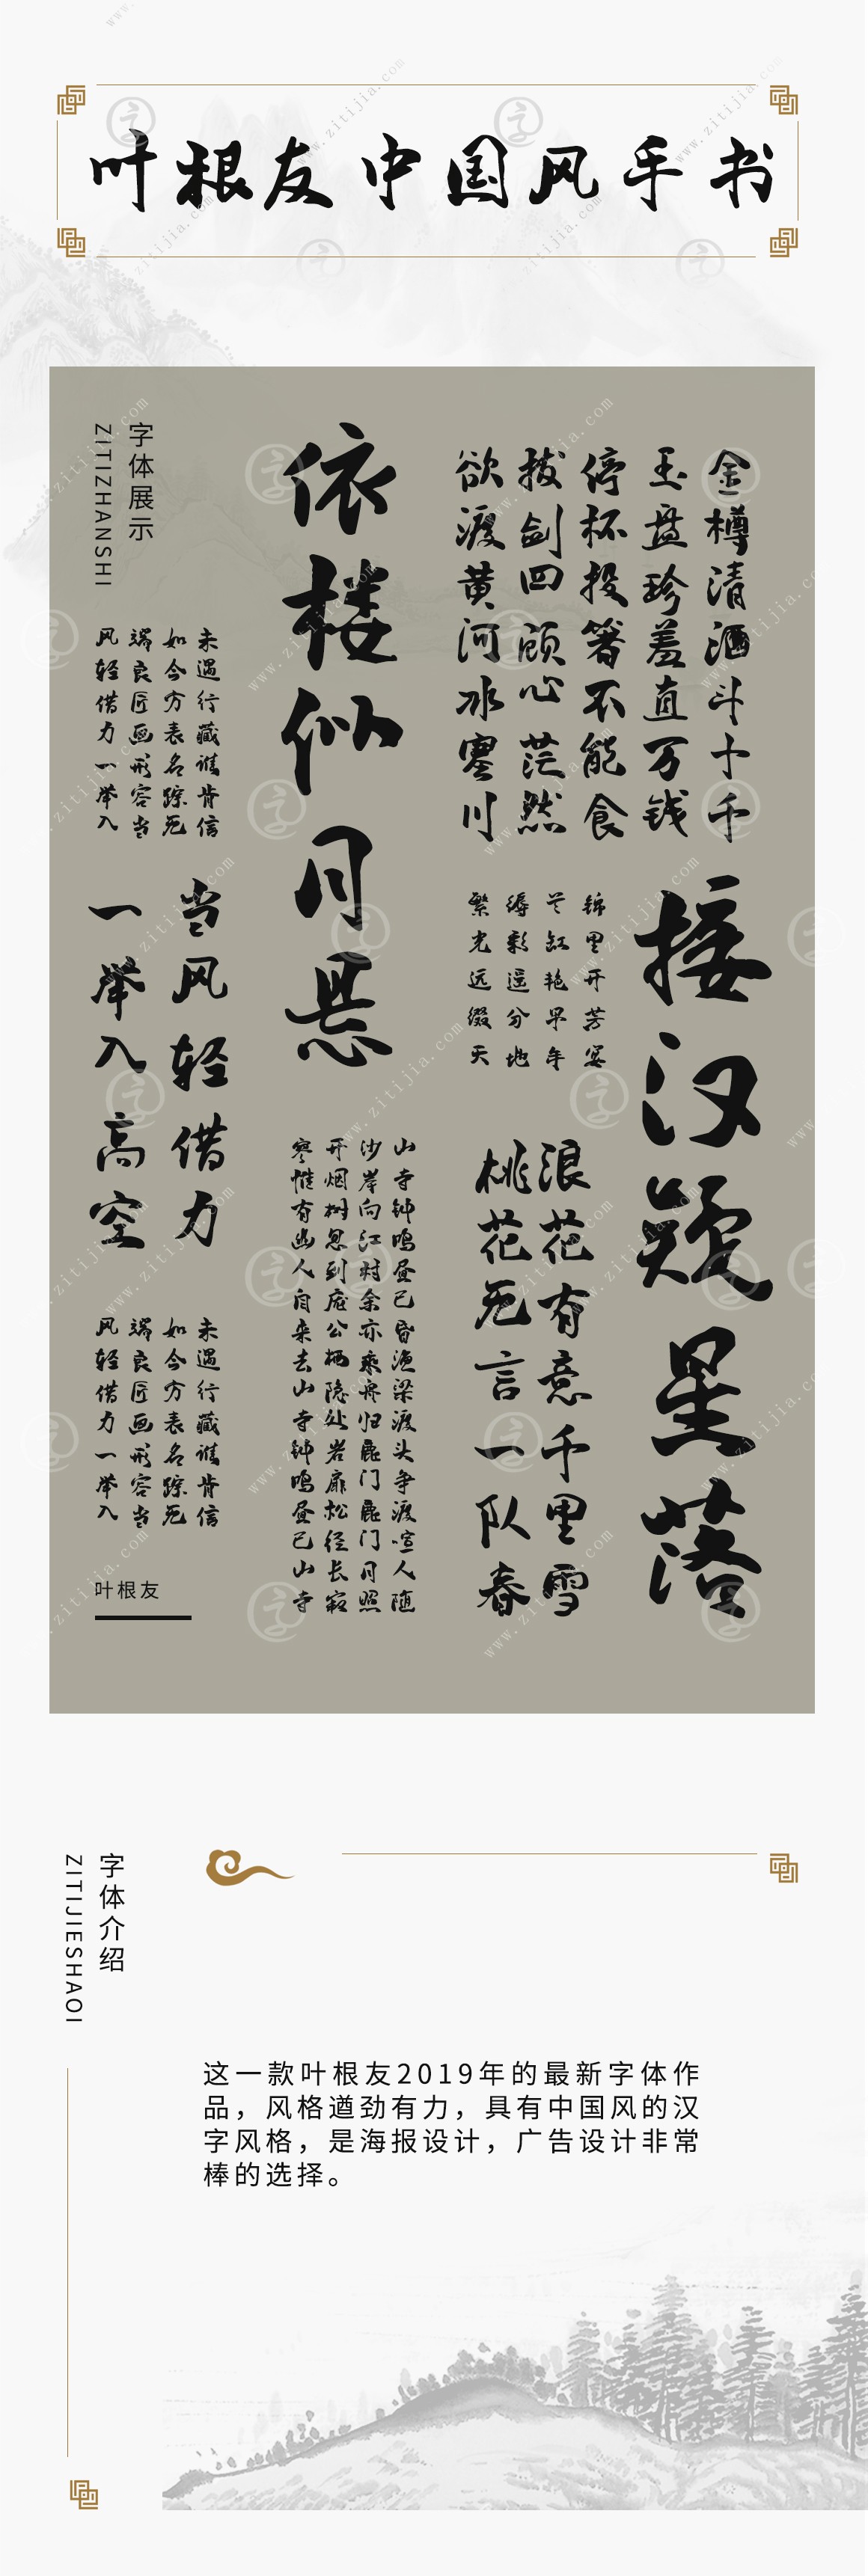 叶根友中国风手书
字体展示
ZITIZHANSHI
金樽清酒斗十千
玉盘珍羞直万钱
停杯投箸不能食
拔剑四顾心茫然
欲渡黄河冰塞川
接汉疑星落
依楼似月悬
锦里开芳宴
兰缸艳早年
缛彩遥分地
繁光远缀天
浪花有意千里雪
桃花无言一队春
山寺钟鸣昼已昏渔梁渡头争渡喧人随
沙岸向江村余亦乘舟归鹿门鹿门月照
开烟树忽到庞公栖隐处岩扉松径长寂
寥惟有幽人自来去山寺钟鸣昼已山寺
未遇行藏谁肯信
如今方表名踪无
端良匠画形容当
风轻借力一举入
当风轻借力
一举入高空
未遇行藏谁肯信
如今方表名踪无
端良匠画形容当
风轻借力一举入
叶根友
字体介绍
ZITIJIESHAOI
这一款叶根友2019年的最新字体作
品，风格遒劲有力，具有中国风的汉
字风格，是海报设计，广告设计非常
棒的选择。
www.zitijia.com